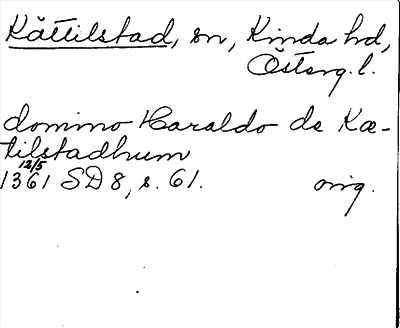 Kättilstad, sn, Kinda hd,
Österg. l.
domino Haraldo de Kæ-
tilstadhum
12/5
1361 SD 8, s. 61. orig.